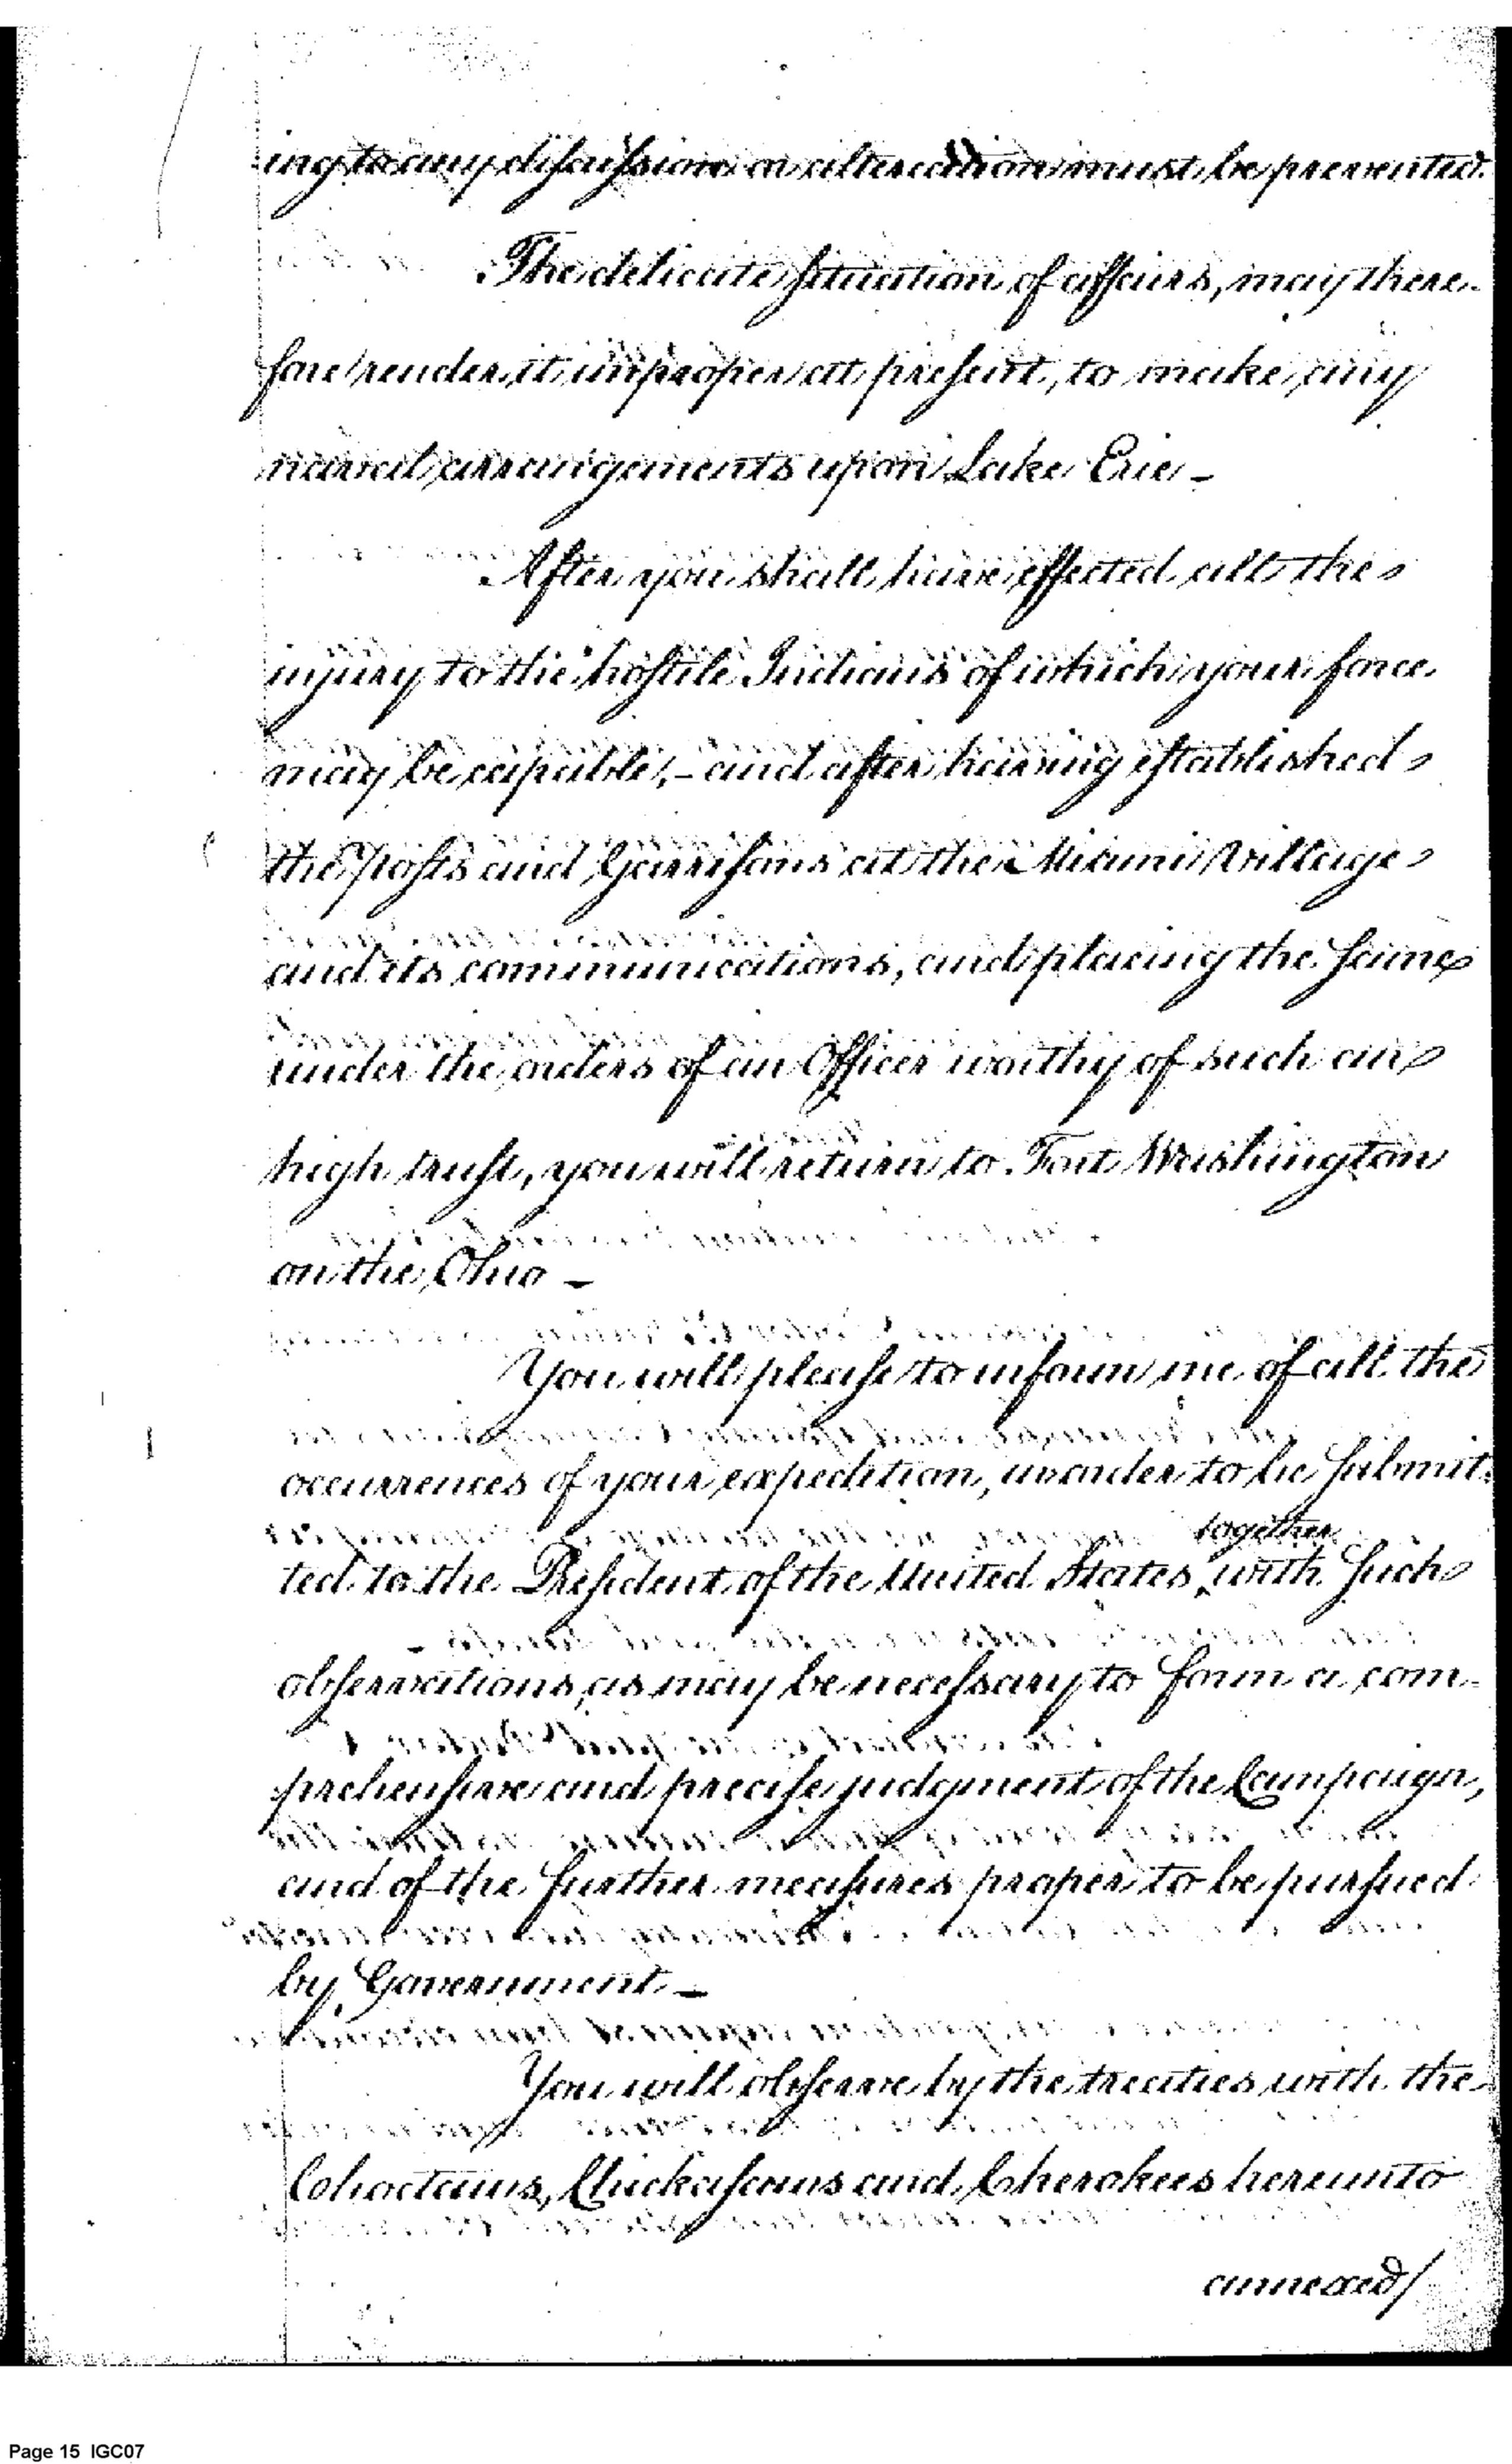 ing to any discussion or altercation must be prevented.
The delicate situation of affairs, may there-
fore render it improper at present, to make any
naval arrangements upon Lake Erie -
After you shall have effected all the
injury to the hostile Indians of which your force
may be capable; - and after having established
the posts and Garrisons at the Miami Village
and its communications, and placing the same
under the orders of an Officer worthy of such an
high trust, you will return to Fort Washington
on the Ohio -
You will please to inform me of all the
occurrences of your expedition, in order to be submit-
together
ted to the President of the United States, with such
observations as may be necessary to form a com-
prehensive and precise judgment of the Campaign,
and of the further measures proper to be pursued
by Government -
You will observe by the treaties with the
Cohoctaws, Chickasaws and Cherokees hereunto
annexed/
Page 15 IGC07